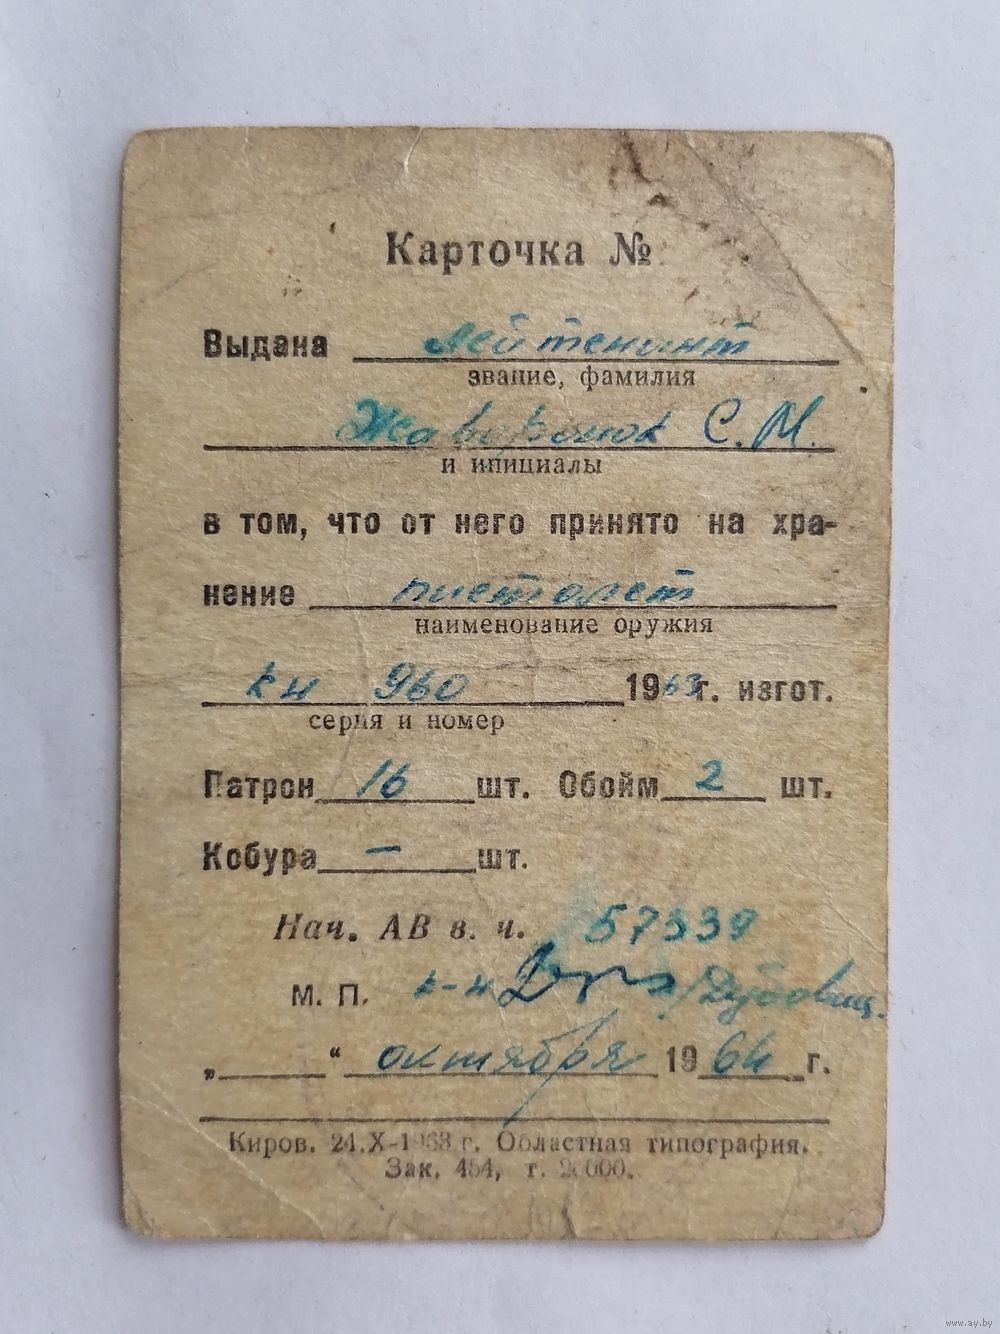 Карточка №
Выдана лейтенант
звание, фамилия
Жаворонок С.М.
и инициалы
в том, что от него принято на хра-
нение пистолет
наименование оружия
кн 960 1963г. изгот.
серия и номер
Патрон 16 шт. Обойм 2 шт.
Кобура — шт.
Нач. АВ в. ч. 57339
М. П. к-н
„ “ октября 1964 г.
Киров. 24.X-1963 г. Областная типография.
Зак. 454, т.
www.ay.by